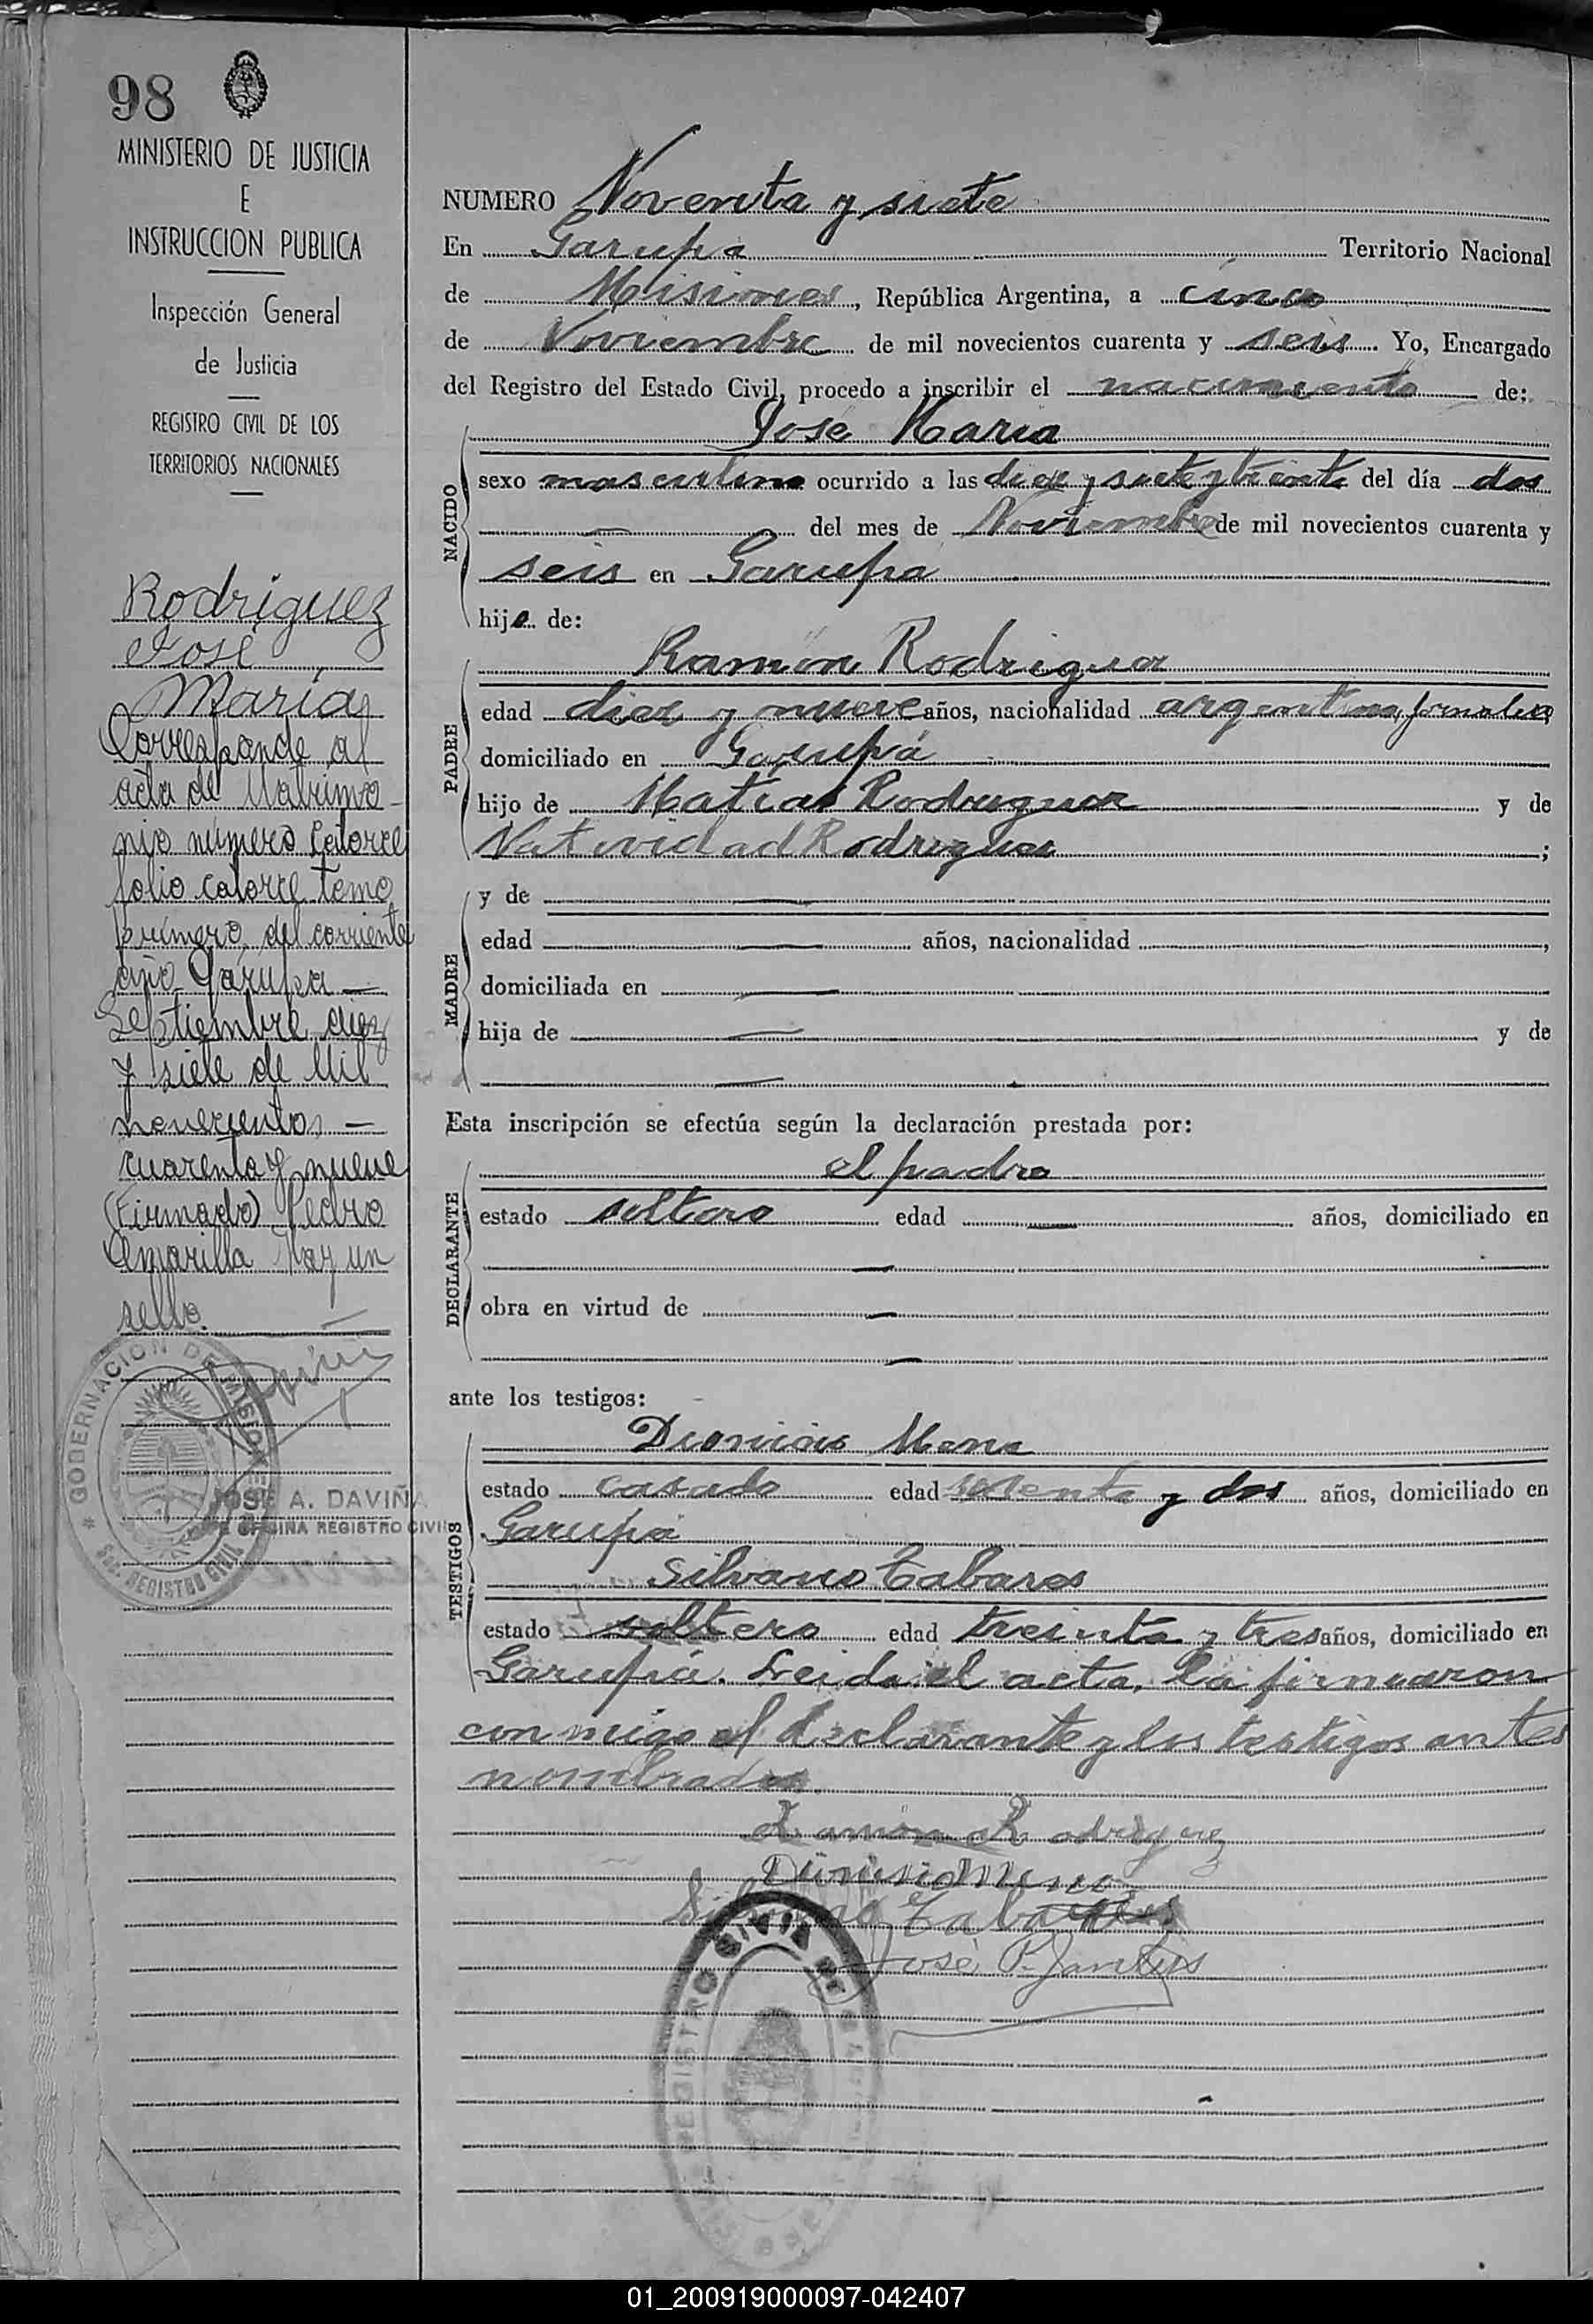 98
MINISTERIO DE JUSTICIA
E
INSTRUCCION PUBLICA
Inspección General
de Justicia
REGISTRO CIVIL DE LOS
TERRITORIOS NACIONALES
Rodriguez
José
María
Corresponde al
acta de Matrimo-
nio número catorce
folio catorce tomo
primero del corriente
año Garupa —
Septiembre diez
y siete de Mil
novecientos —
cuarenta y nueve
(Firmado) Pedro
Amarilla Hay un
sello.
GOBERNACION DE MISIONES
SEC. REGISTRO CIVIL
JOSE A. DAVIÑA
JEFE OFICINA REGISTRO CIVIL
NUMERO Noventa y siete
En Garupa Territorio Nacional
de Misiones, República Argentina, a cinco
de Noviembre de mil novecientos cuarenta y seis. Yo, Encargado
del Registro del Estado Civil, procedo a inscribir el nacimiento de:
NACIDO
José Maria
sexo masculino ocurrido a las diez y siete y treinta del día dos
— del mes de Noviembre de mil novecientos cuarenta y
seis en Garupa
hijo de:
PADRE
Ramón Rodriguez
edad diez y nueve años, nacionalidad argentino, jornalero
domiciliado en Garupá
hijo de Matias Rodriguez y de
Natividad Rodriguez;
MADRE
y de —
edad — años, nacionalidad ,
domiciliada en —
hija de — y de
—
Esta inscripción se efectúa según la declaración prestada por:
DECLARANTE
el padre
estado soltero edad — años, domiciliado en
—
obra en virtud de —
—
ante los testigos:
TESTIGOS
Dionicio Mena
estado casado edad sesenta y dos años, domiciliado en
Garupá
Silvano Tabares
estado soltero edad treinta y tres años, domiciliado en
Garupá. Leida el acta, la firmaron
con migo el declarante y los testigos antes
nombrados
Ramon Rodriguez
Dionisio Meno
Silvano Tabares
José P.
REGISTRO CIVIL DE
01_200919000097-042407